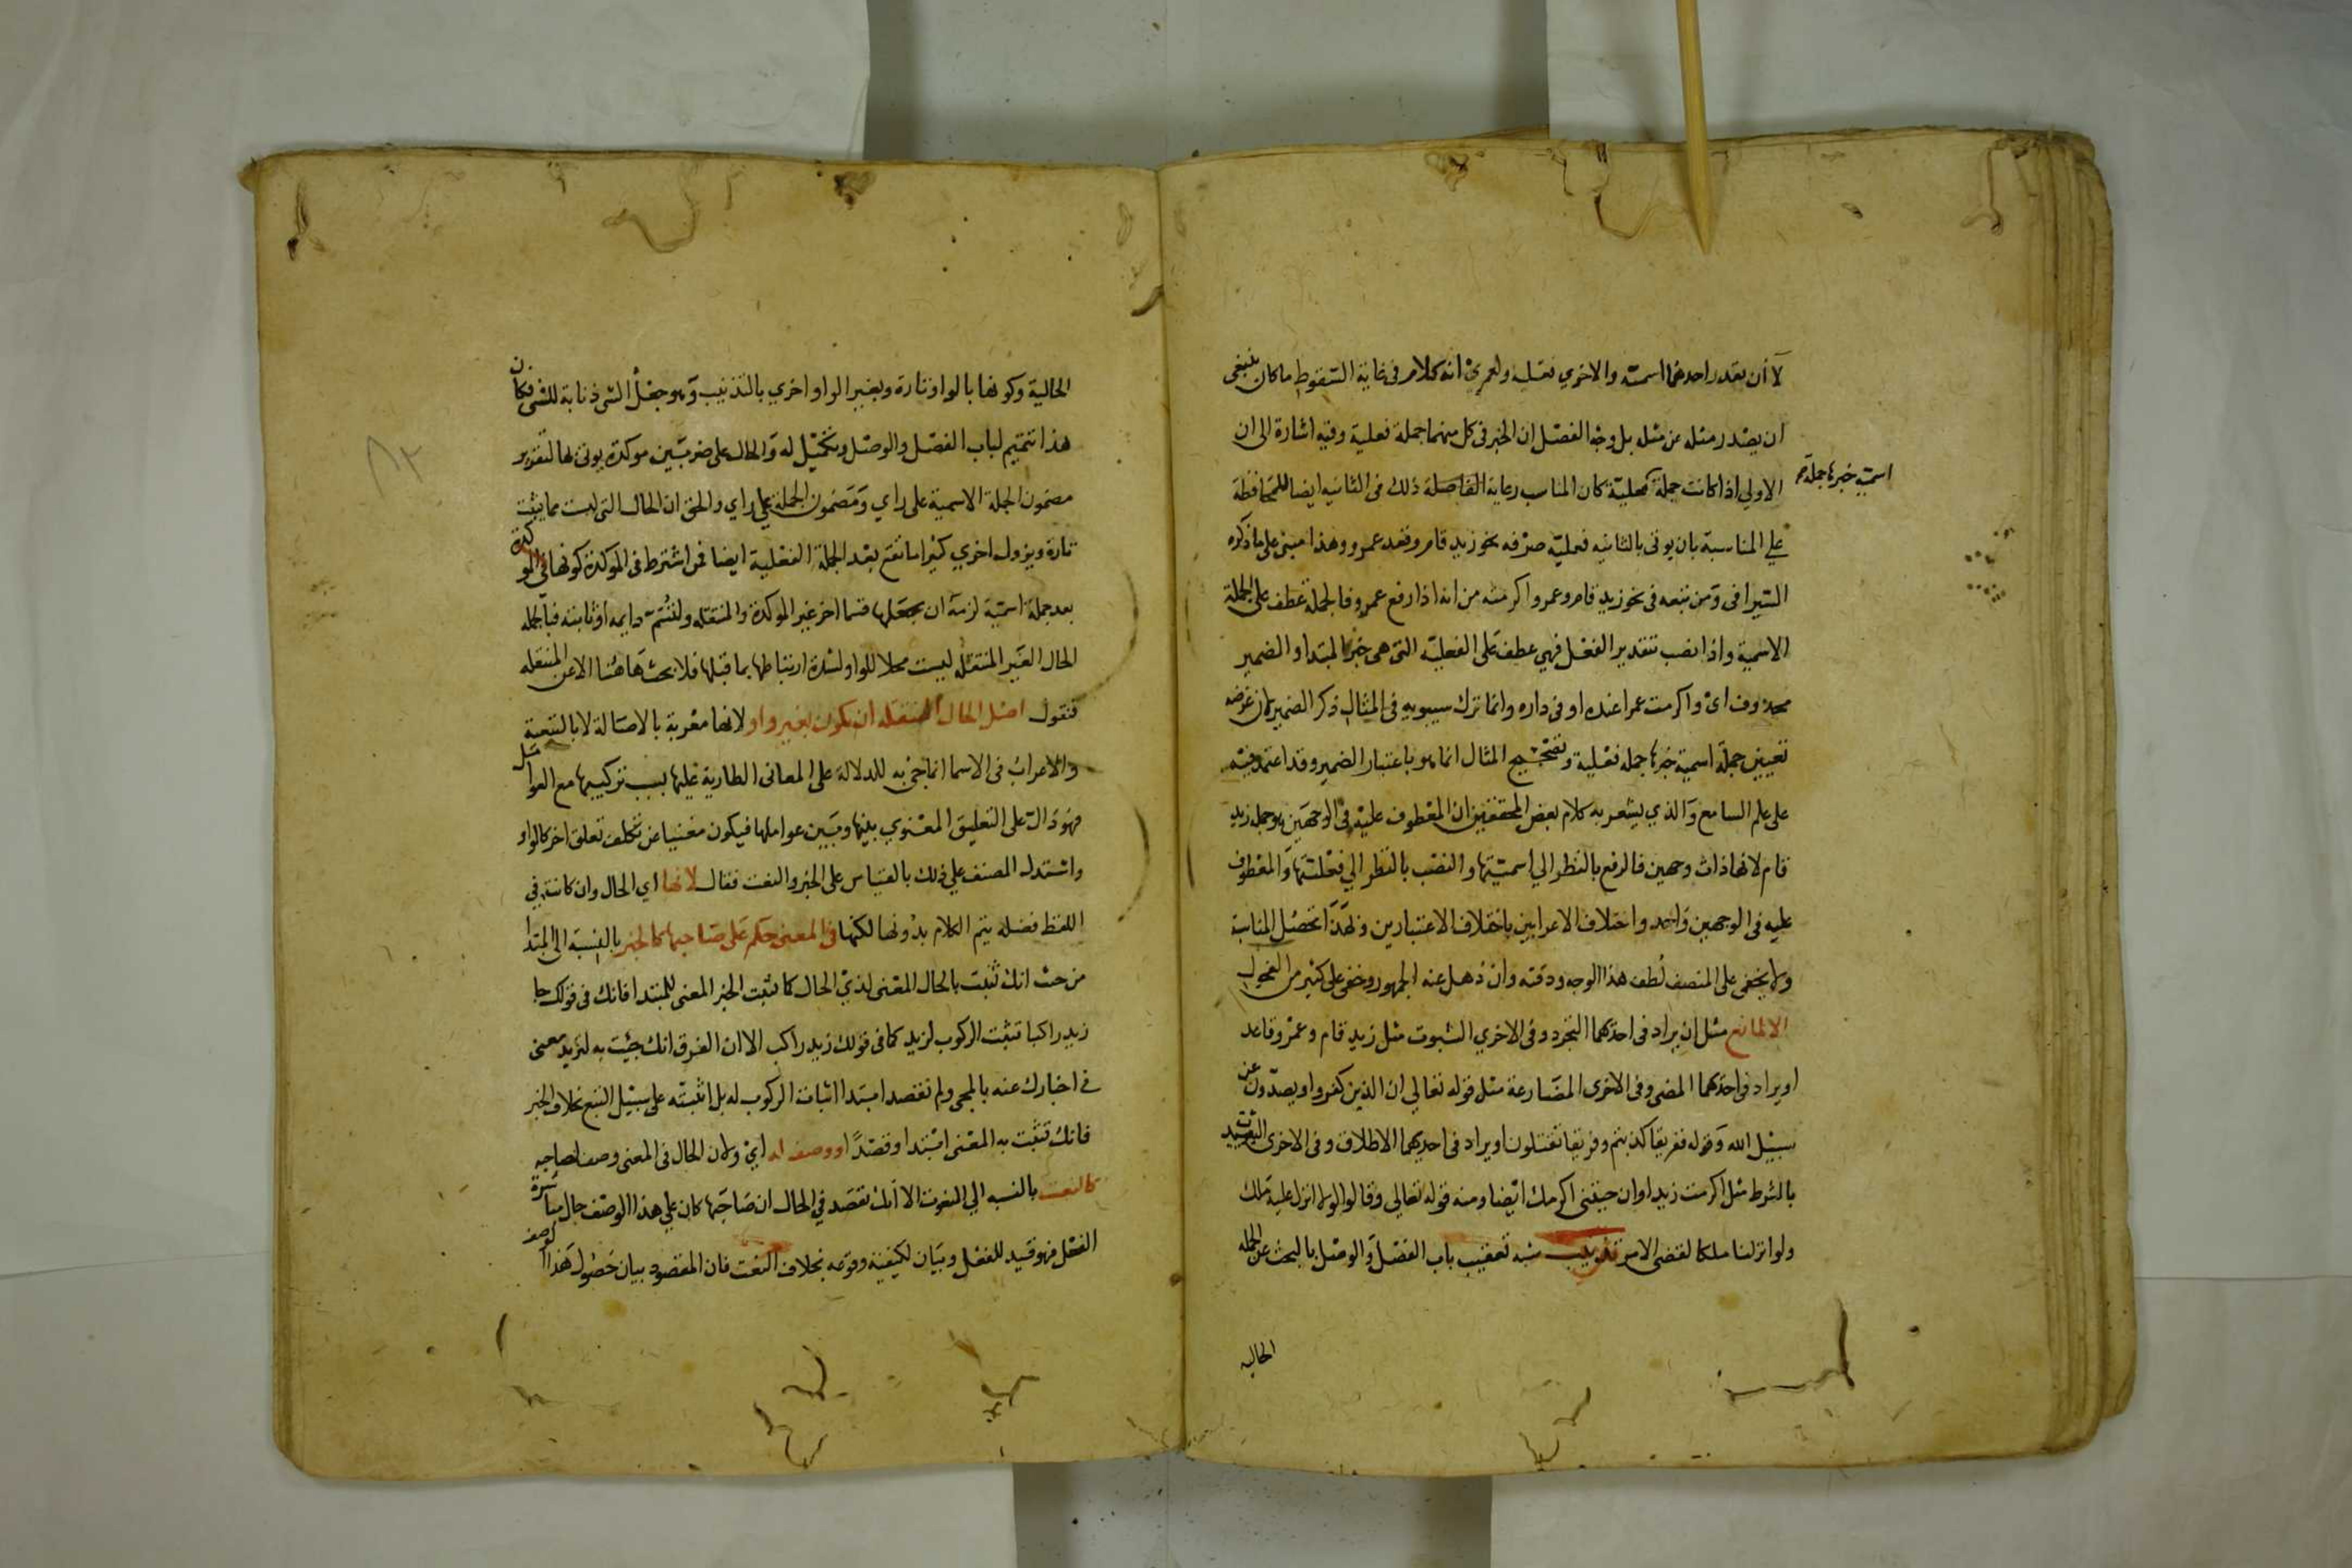 لا أن يقدر احدهما اسمية والاخري فعلية ولعمري انه كلام فى غاية السقوط ما كان ينبغى
ان يصدر مثله عن مثله بل وجه الفصل ان الخبر فى كل منهما جملة فعلية وفيه اشارة الى ان
الاولي اذا كانت جملة فعلية كان المناسب رعاية ذلك فى الثانيه ايضا للمحافظة
اسمية خبرها جملة
علي المناسبة بان يوتى بالثانيه فعلية صرفه نحو زيد قام وقعد عمرو وهذا مبنى على ما ذكره
السيرافى ومن تبعه فى نحو زيد قام وعمرو اكرمته من انه اذا رفع عمرو فالجملة عطف على الجملة
الاسمية واذا نصب بتقدير الفعل فهي عطف على الفعلية التى هى خبر المبتدا والضمير
محذوف اى واكرمت عمرا عنده او فى داره وانما ترك سيبويه فى المثال ذكر الضمير لان غرضه
تعيين جملة اسمية خبرها جمله فعلية وتصحيح المثال انما هو باعتبار الضمير وقد اعتمد فيه
على علم السامع والذي يشعر به كلام بعض المحققين ان المعطوف عليه فى الوجهين هو جملة زيد
قام لانها ذات وجهين فالرفع بالنظر الي اسميتها والنصب بالنظر الي فعليتها والمعطوف
عليه فى الوجهين واحد واختلاف الاعرابين باختلاف الاعتبارين وبهذا تحصل المناسبة
ولا يخفى على المنصف لطف هذا الوجه ودقته وان ذهل عنه الجمهور وخفى على كثير من الفحول
الا لمانع مثل ان يراد فى احدهما التجدد وفى الاخري الثبوت مثل زيد قام وعمرو قاعد
او يراد فى احدهما المضى وفى الاخرى المضارعة مثل قوله تعالى ان الذين كفروا ويصدون عن
سبيل الله وقوله ففريقا كذبتم وفريقا تقتلون او يراد فى احديهما الاطلاق وفى الاخرى التقييد
بالشرط مثل اكرمت زيدا وان جيتنى اكرمك ايضا ومنه قوله تعالى وقالوا لولا انزل عليه ملك
ولو انزلنا ملكا لقضى الامر تذنيب شبه تعقيب باب الفصل والوصل بالبحث عن الجمله
الحاليه
الحالية وكونها بالواو تارة وبغير الواو اخري بالتذنيب وهو جعل الشى ذنابة للشى فكان
هذا تتميم لباب الفصل والوصل وتكميل له والحال على ضربين موكدة يوتى بها لتقرير
مضمون الجملة الاسمية على راي ومضمون الجملة علي راي والحق ان الحال التى ليست مما يثبت
تارة ويزول اخري كثيرا ما تقع بعد الجملة الفعلية ايضا فمن اشترط فى الموكدة كونها
بعد جملة اسمية لزمه ان يجعلها قسما اخر غير الموكدة والمنتقله ولتسم دايمه او ثابته فبالجمله
الحال الغير المنتقله ليست محلا للواو لشدة ارتباطها بما قبلها فلا بحث هاهنا الا عن المنتقله
فنقول اصل الحال المنتقله ان يكون بغير واو لانها معربة بالاصالة لا بالتبعية
والاعراب فى الاسما انما جئ به للدلالة على المعانى الطارية عليها بسبب تركيبها مع العوامل
فهو دال على التعليق المعنوي بينها وبين عواملها فيكون مغنيا عن تكلف تعلق اخر كالواو
واستدل المصنف علي ذلك بالقياس على الخبر والنعت فقال لانها اي الحال وان كانت في
اللفظ فضله يتم الكلام بدونها لكنها فى المعنى حكم على صاحبها كالخبر بالنسبة الى المبتدا
من حيث انك تثبت بالحال المعنى لذي الحال كما تثبت الخبر المعنى للمبتدا فانك فى قولك جا
زيد راكبا تثبت الركوب لزيد كما فى قولك زيد راكب الا ان الفرق انك جيت به لتزيد معنى
فى اخبارك عنه بالمجى ولم تقصد ابتدا اثبات الركوب له بل اثبته على سبيل التبع بخلاف الخبر
فانك تثبت به المعنى ابتدا وقصدا او وصف له اي ولان الحال فى المعنى وصف لصاحبه
كالنعت بالنسبه الي المنعوت الا انك تقصد في الحال ان صاحبها كان علي هذا الوصف حال مباشرة
الفعل فهو قيد للفعل وبيان لكيفية وقوعه بخلاف النعت فان المقصود بيان حصول هذا الوصف
٨٢